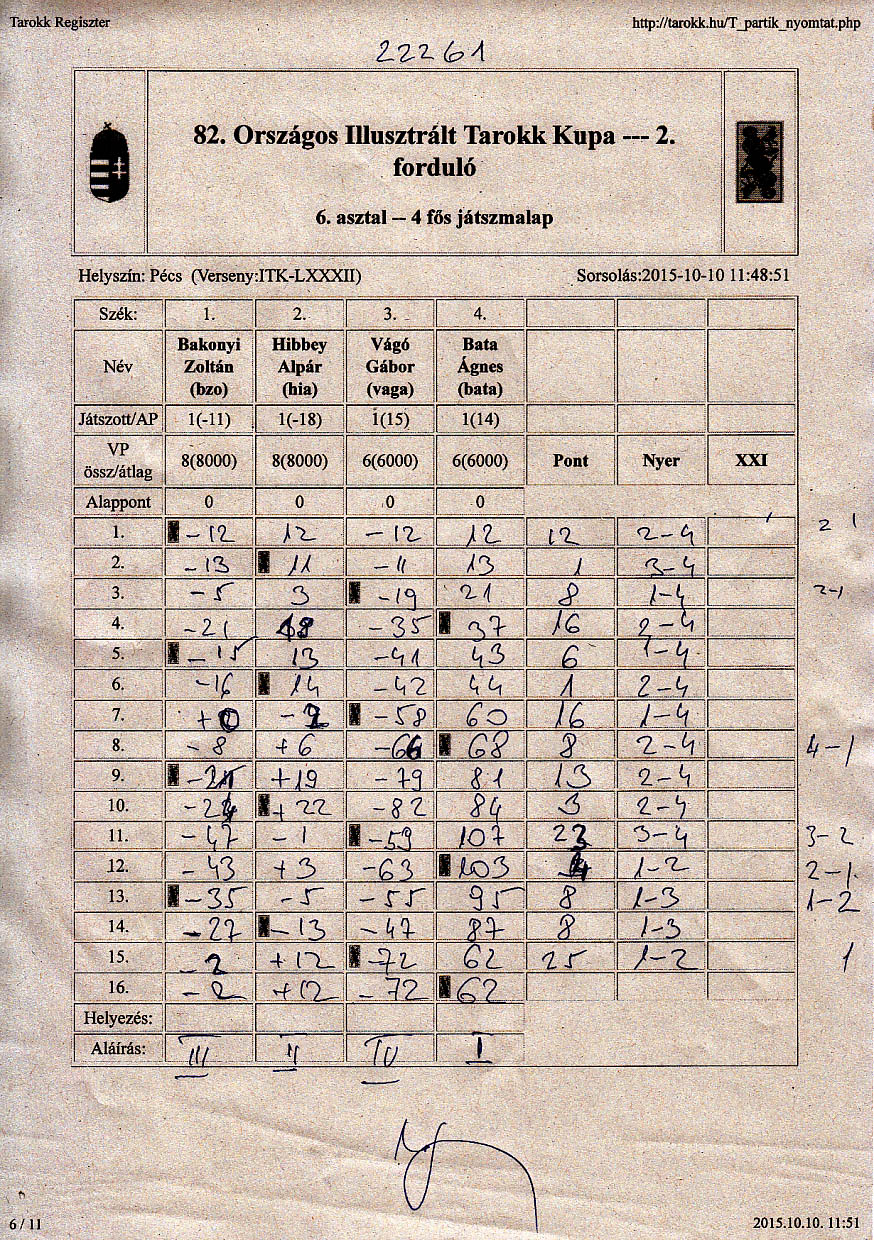 Tarokk Regiszter http://tarokk.hu/T_partik_nyomtat.php
22261
82. Országos Illusztrált Tarokk Kupa --- 2.
forduló
6. asztal -- 4 fős játszmalap
Helyszín: Pécs (Verseny:ITK-LXXXII) Sorsolás:2015-10-10 11:48:51
Szék: 1. 2. 3. 4.
Név Bakonyi Zoltán (bzo) Hibbey Alpár (hia) Vágó Gábor (vaga) Bata Ágnes (bata)
Játszott/AP 1(-11) 1(-18) 1(15) 1(14)
VP össz/átlag 8(8000) 8(8000) 6(6000) 6(6000) Pont Nyer XXI
Alappont 0 0 0 0
1. -12 12 -12 12 12 2-4 2 1
2. -13 11 -11 13 1 3-4
3. -5 3 -19 21 8 1-4 2-1
4. -21 -35 37 16 2-4
5. -15 13 -41 43 6 1-4
6. -16 14 -42 44 1 2-4
7. +0 -2 -58 60 16 1-4
8. -8 +6 -66 68 8 2-4 4-1
9. +19 -79 81 13 2-4
10. -24 +22 -82 84 3 2-4
11. -47 -1 -59 107 23 3-4 3-2
12. -43 +3 -63 103 4 1-2 2-1
13. -35 -5 -55 95 8 1-3 1-2
14. -27 -13 -47 87 8 1-3
15. -2 +12 -72 62 25 1-2 1
16. -2 +12 -72 62
Helyezés:
Aláírás: III II IV I
6 / 11 2015.10.10. 11:51